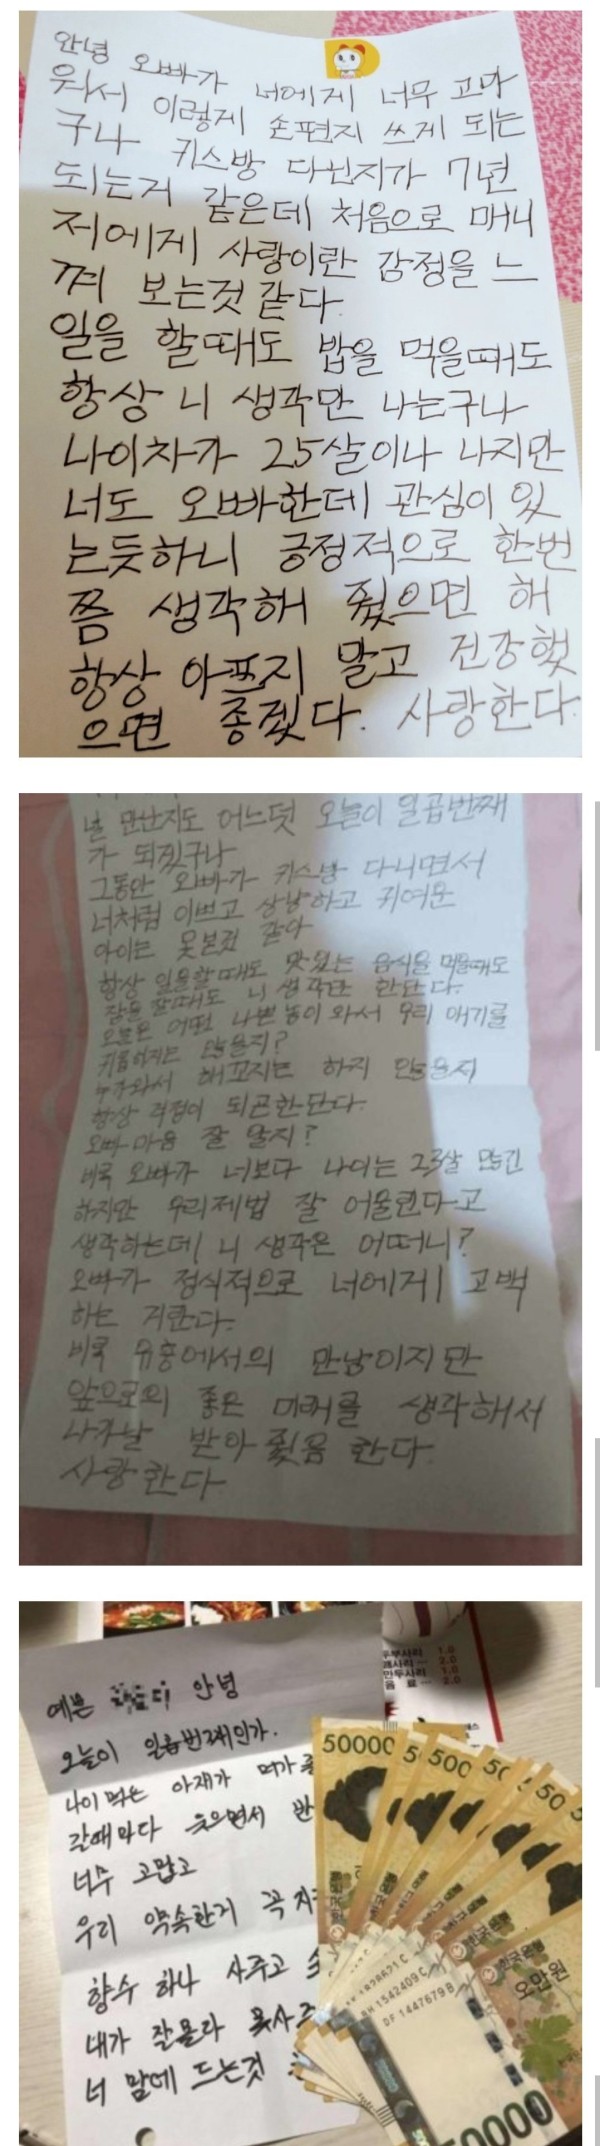 안녕 오빠가 너에게 너무 고마
워서 이렇게 손편지 쓰게 되는
구나 키스방 다닌지가 7년
되는거 같은데 처음으로 매니
저에게 사랑이란 감정을 느
껴 보는것 같다.
일을 할때도 밥을 먹을때도
항상 니 생각만 나는구나
나이차가 25살이나 나지만
너도 오빠한데 관심이 있
는듯하니 긍정적으로 한번
쯤 생각해 줬으면 해
항상 아프지 말고 건강했
으면 좋겠다. 사랑한다.
널 만난지도 어느덧 오늘이 일곱번째
가 되겠구나
그동안 오빠가 키스방 다니면서
너처럼 이쁘고 상냥하고 귀여운
아이는 못본것 같아
항상 일을할때도 맛있는 음식을 먹을때도
잠을 잘때도 니 생각만 한단다.
오늘은 어떤 나쁜 놈이 와서 우리 애기를
않을지?
누가와서 해꼬지는 하지 않을지
항상 걱정이 되곤한단다.
오빠 마음 잘 알지?
비록 오빠가 너보다 나이는 23살 많긴
하지만 우리제법 잘 어울린다고
생각하는데 니 생각은 어떠니?
오빠가 정식적으로 너에게 고백
하는 거란다.
비록 유흥에서의 만남이지만
앞으로의 좋은 미래를 생각해서
나주날 받아 줬음 한다.
사랑한다
예쁜 디 안녕
오늘이 일곱번째인가.
나이먹은 아재가 머가 좋
갈때마다 웃으면서 반
너무 고맙고
우리 약속한거 꼭 지
향수 하나 사주고
내가 잘몰라 못사주
너 맘에 드는것
두부사리 1.0
사리 2.0
만두사리 1.0
음료 2.0
50000 5 500 50 50 5
한국은행
오만원
BH1542409C
DF1447679B
50000